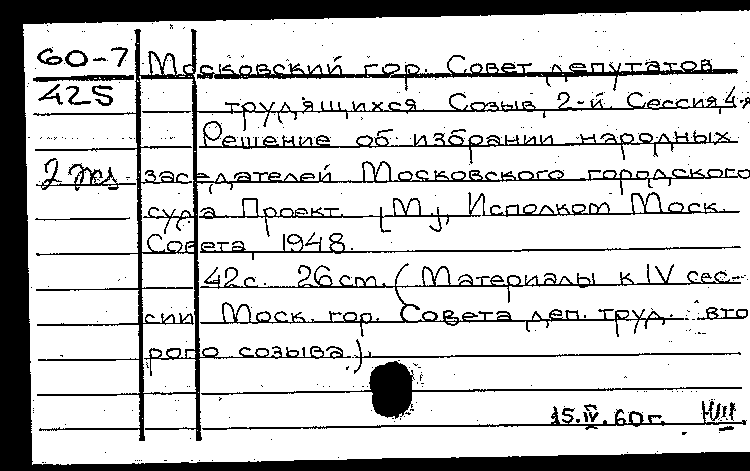 60-7 Московский гор. Совет депутатов
425 трудящихся. Созыв, 2-й. Сессия, 4-я
Решение об избрании народных
2 экз. заседателей Московского городского
суда Проект. [М.], Исполком Моск.
Совета, 1948.
42с. 26cm. (Материалы к IV сес-
сии Моск. гор. Совета деп. труд. вто
рого созыва.).
15.IV.60г.